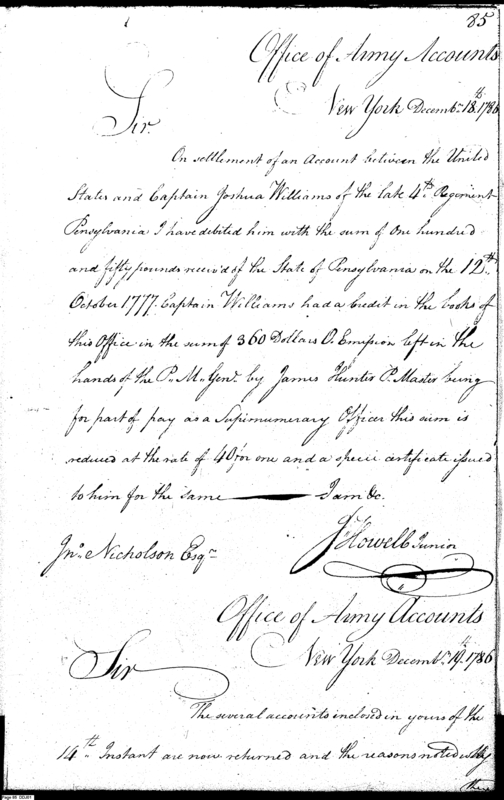 85
Office of Army Accounts
New York Decembr. 18th. 1786
Sir.
On settlement of an Account between the United
States and Captain Joshua Williams of the late 4th. Regiment
Pensylvania I have debited him with the sum of One hundred
and fifty pounds receiv'd of the State of Pensylvania on the 12th.
October 1777. Captain Williams had a Credit in the books of
this Office in the sum of 360 Dollars O. Emission left in the
hands of the P. Mr. Genl. by James Hunter P. Master being
for part of pay as a Supernumerary Officer this sum is
reduced at the rate of 40 for one and a specie certificate issued
to him for the same — I am &c.
Jn°. Nicholson Esqr.
Js. Howell Junior
Office of Army Accounts
New York Decembr. 19th. 1786
Sir
The several accounts inclosed in yours of the
14th. Instant are now returned and the reasons noted why
these
Page 85